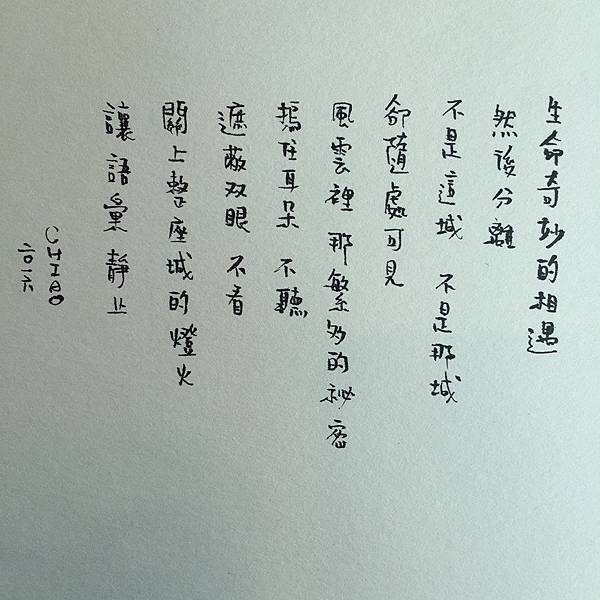 生命奇妙的相遇
然後分離
不是這城 不是那城
卻隨處可見
風雲裡那繁多的祕密
摀住耳朵 不聽
遮蔽双眼 不看
關上整座城的燈火
讓語彙靜止
CHIBO
二〇一六